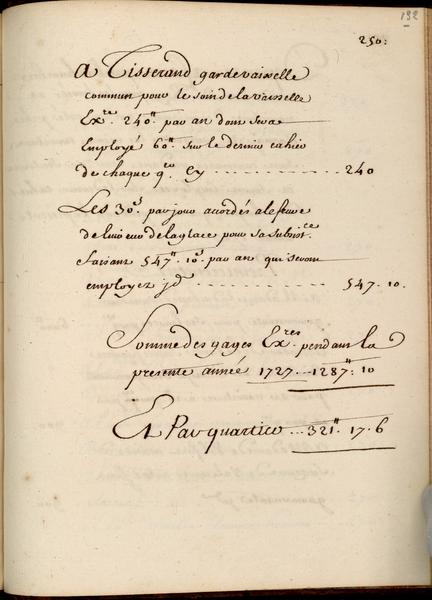 192
250:
A Tisserand gardevaisselle
commun pour le soin de la vaisselle
Ex.re 240.tt par an dont sera
Employé 60.tt sur le dernier cahier
de chaque q.er Cy ---------- 240
Les 30.s par jour accordés a le feure
delivreur de la glace pour sa subsist.ce
faisant 547.tt 10.s par an qui seront
employez jd. ---------- 547. 10.
Somme des gages Ex.res pendant la
presente année 1727 --- 1287.tt 10
Et Par quartier ... 321.tt 17. 6